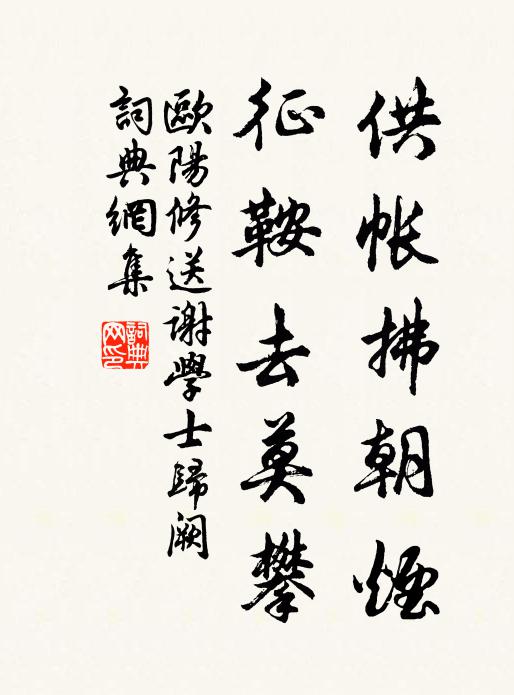 供帳拂朝煙
征鞍去莫攀
歐陽修送謝學士歸闕
詞典網集
詞典网印